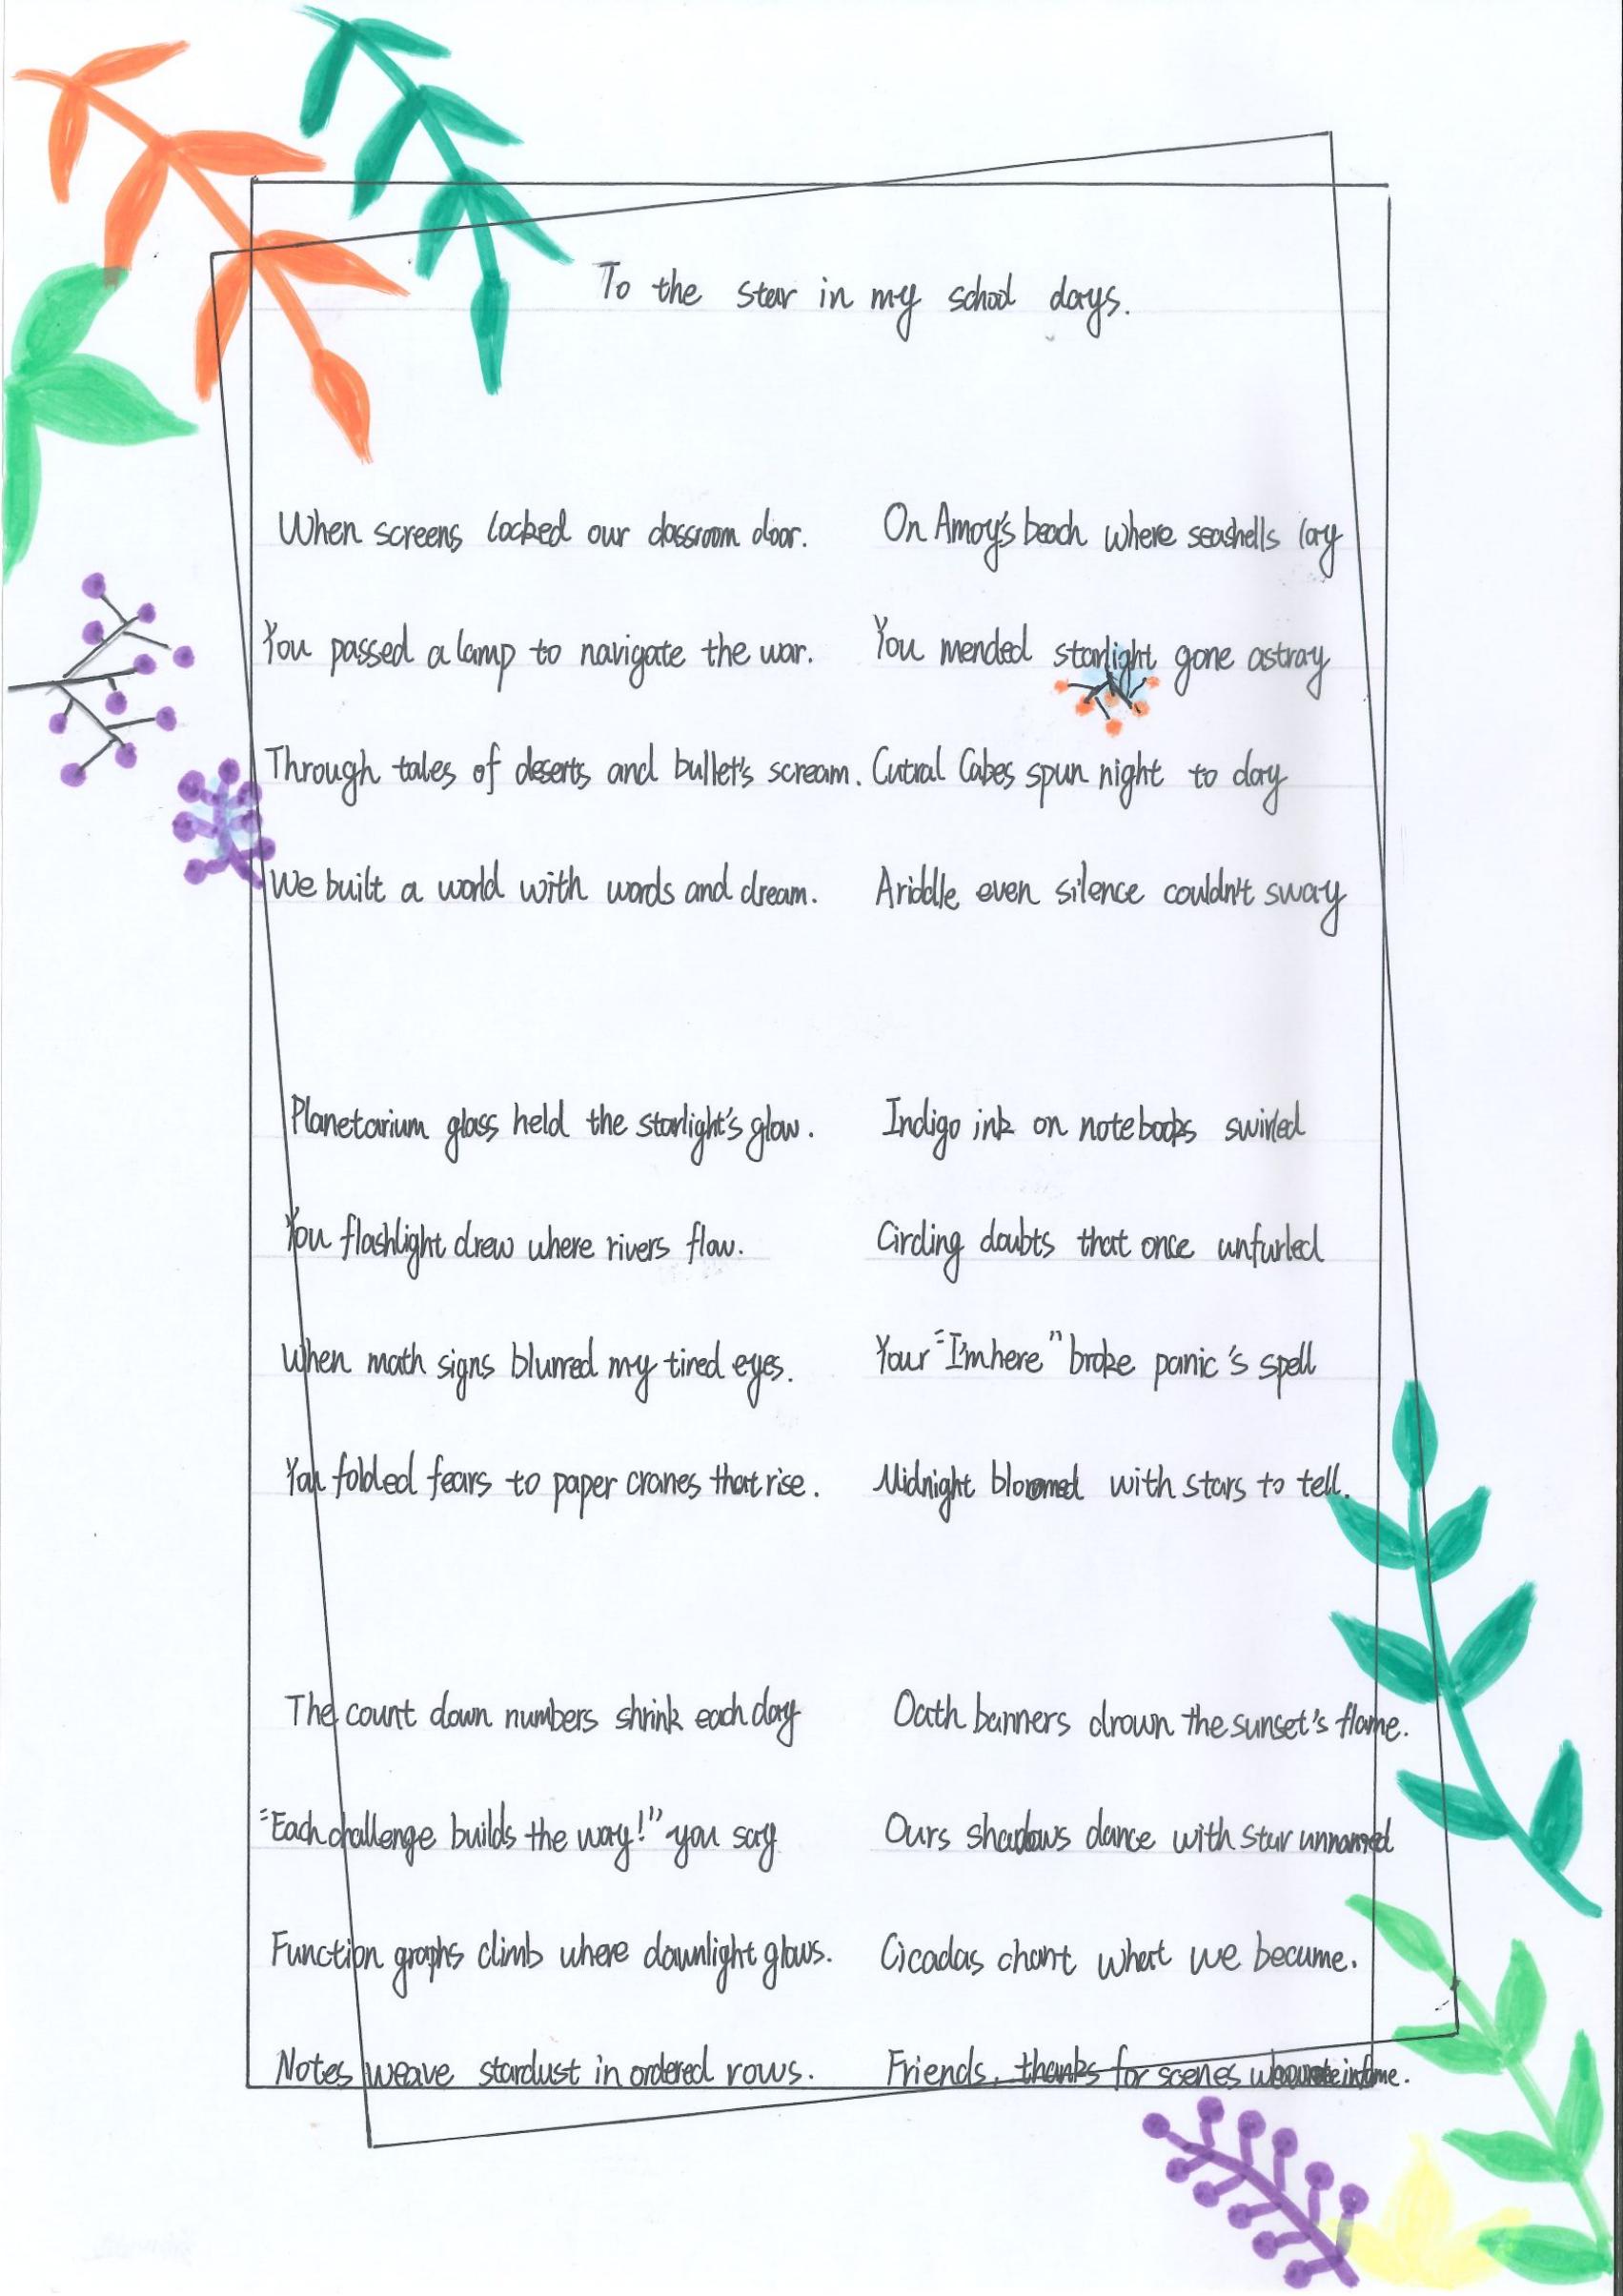 To the star in my school days.
When screens locked our classroom door.
You passed a lamp to navigate the war.
Through tales of deserts and bullet's scream.
We built a world with words and dream.
Planetarium glass held the starlight's glow.
You flashlight drew where rivers flow.
When math signs blurred my tired eyes.
You folded fears to paper cranes that rise.
The count down numbers shrink each day
"Each challenge builds the way!" you say
Function graphs climb where dawnlight glows.
Notes weave stardust in ordered rows.
On Amoy's beach where seashells lay
You mended starlight gone astray
spun night to day
A riddle even silence couldn't sway
Indigo ink on notebooks swirled
Circling doubts that once unfurled
Your "I'm here" broke panic's spell
Midnight bloomed with stars to tell.
Oath banners drown the sunset's flame.
Ours shadows dance with star unnamed
Cicadas chant what we became.
Friends, thanks for scenes